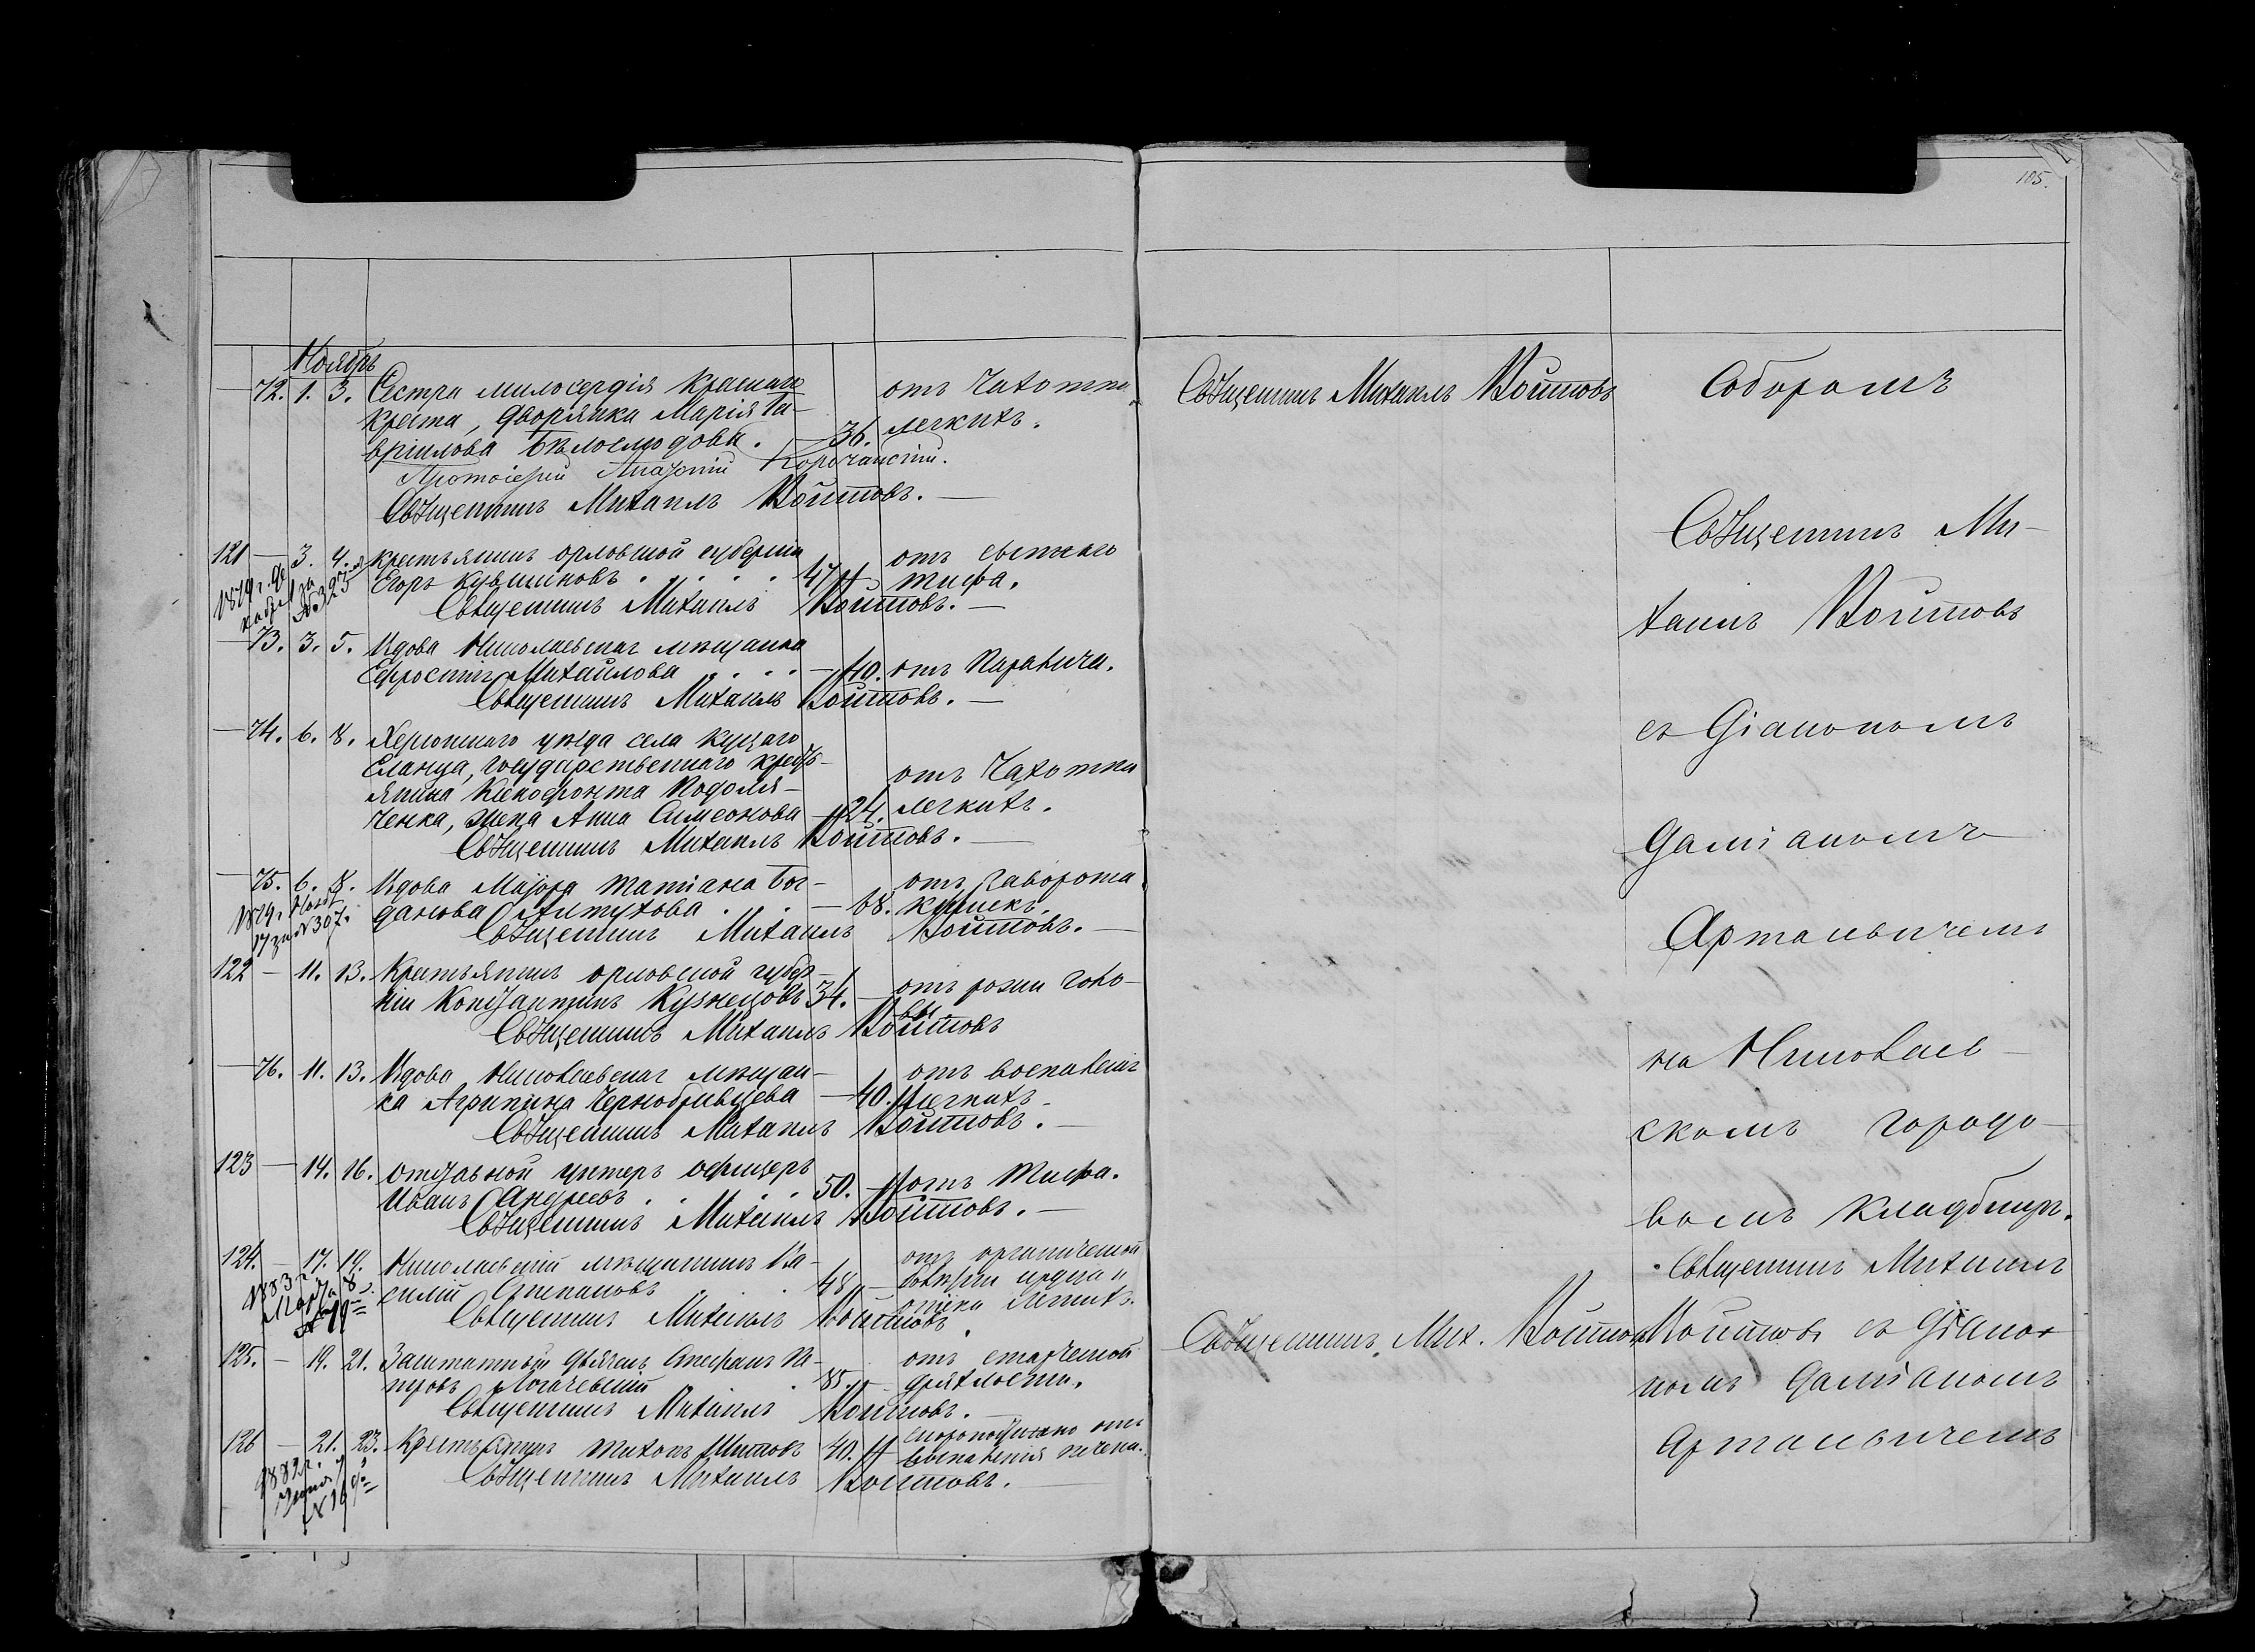 105.
Ноябрь
72. 1. 3. Сестра милосердія краснаго
креста, дворянка Марія Га-
вріилова Бѣлослюдова. — 36. отъ чахотки
легкихъ.
Протоіерей Корочанскій.
Священникъ Михаилъ Войтовъ. —
121 — 3. 4. крестьянинъ орловской губерніи
Егоръ Кувшиновъ . . . . 47 отъ
тифа.
1879 г. де
кабря
№ 325
Священникъ Михаилъ Войтовъ. —
— 73. 3. 5. Вдова Николаевская мѣщанка
Ефросинія Михайлова . . . — 40. отъ Паралича.
Священникъ Михаилъ Войтовъ. —
— 74. 6. 8. Херсонскаго уѣзда села Куцаго
Еланца, государственнаго кресть-
янина Ксенофонта Подоля-
ченка, жена Анна Симеонова — 24. отъ Чахотки
легкихъ.
Священникъ Михаилъ Войтовъ. —
— 75. 6. 8. Вдова Маіора Татіана Бог-
данова Алтухова . . — 68. отъ заворота
кишекъ.
1879.
17 за № 307.
Священникъ Михаилъ Войтовъ. —
122 — 11. 13. Крестьянинъ орловской губер-
ніи Константинъ Кузнецовъ 34. — отъ рожи голо-
вы
Священникъ Михаилъ Войтовъ
— 76. 11. 13. Вдова Николаевская мѣщан-
ка Агрипина Чернобривцева — 40. отъ воспаленія
легкихъ.
Священникъ Михаилъ Войтовъ. —
123 — 14. 16. отставной унтеръ офицеръ
Иванъ Андреевъ . . . . 50. — отъ Тифа.
Священникъ Михаилъ Войтовъ. —
124. — 17. 19. Николаевскій мѣщанинъ Ва-
силій Степановъ . . . 48 — отъ органической
болѣзни сердца и
отека легкихъ.
1883 г.
Марта 8
№ 19
Священникъ Михаилъ Войтовъ.
125. — 19. 21. Заштатный дьячекъ Стефанъ Пе-
тровъ Логачевскій . 85. — отъ старческой
дряхлости.
Священникъ Михаилъ Войтовъ. —
126 — 21. 23. Крестьянинъ Тихонъ Шитовъ 40. скоропостижно отъ
воспаленія печени.
1882 г.
Священникъ Михаилъ Войтовъ. —
Священникъ Михаилъ Войтовъ
Соборомъ
Священникъ Ми-
хаилъ Войтовъ
съ Діакономъ
Даміаномъ
Артасевичемъ
на Николаев-
скомъ городо-
вомъ кладбищѣ.
Священникъ Михаилъ
Священникъ Мих. Войтовъ
Войтовъ съ Діако-
номъ Даміаномъ
Артасевичемъ